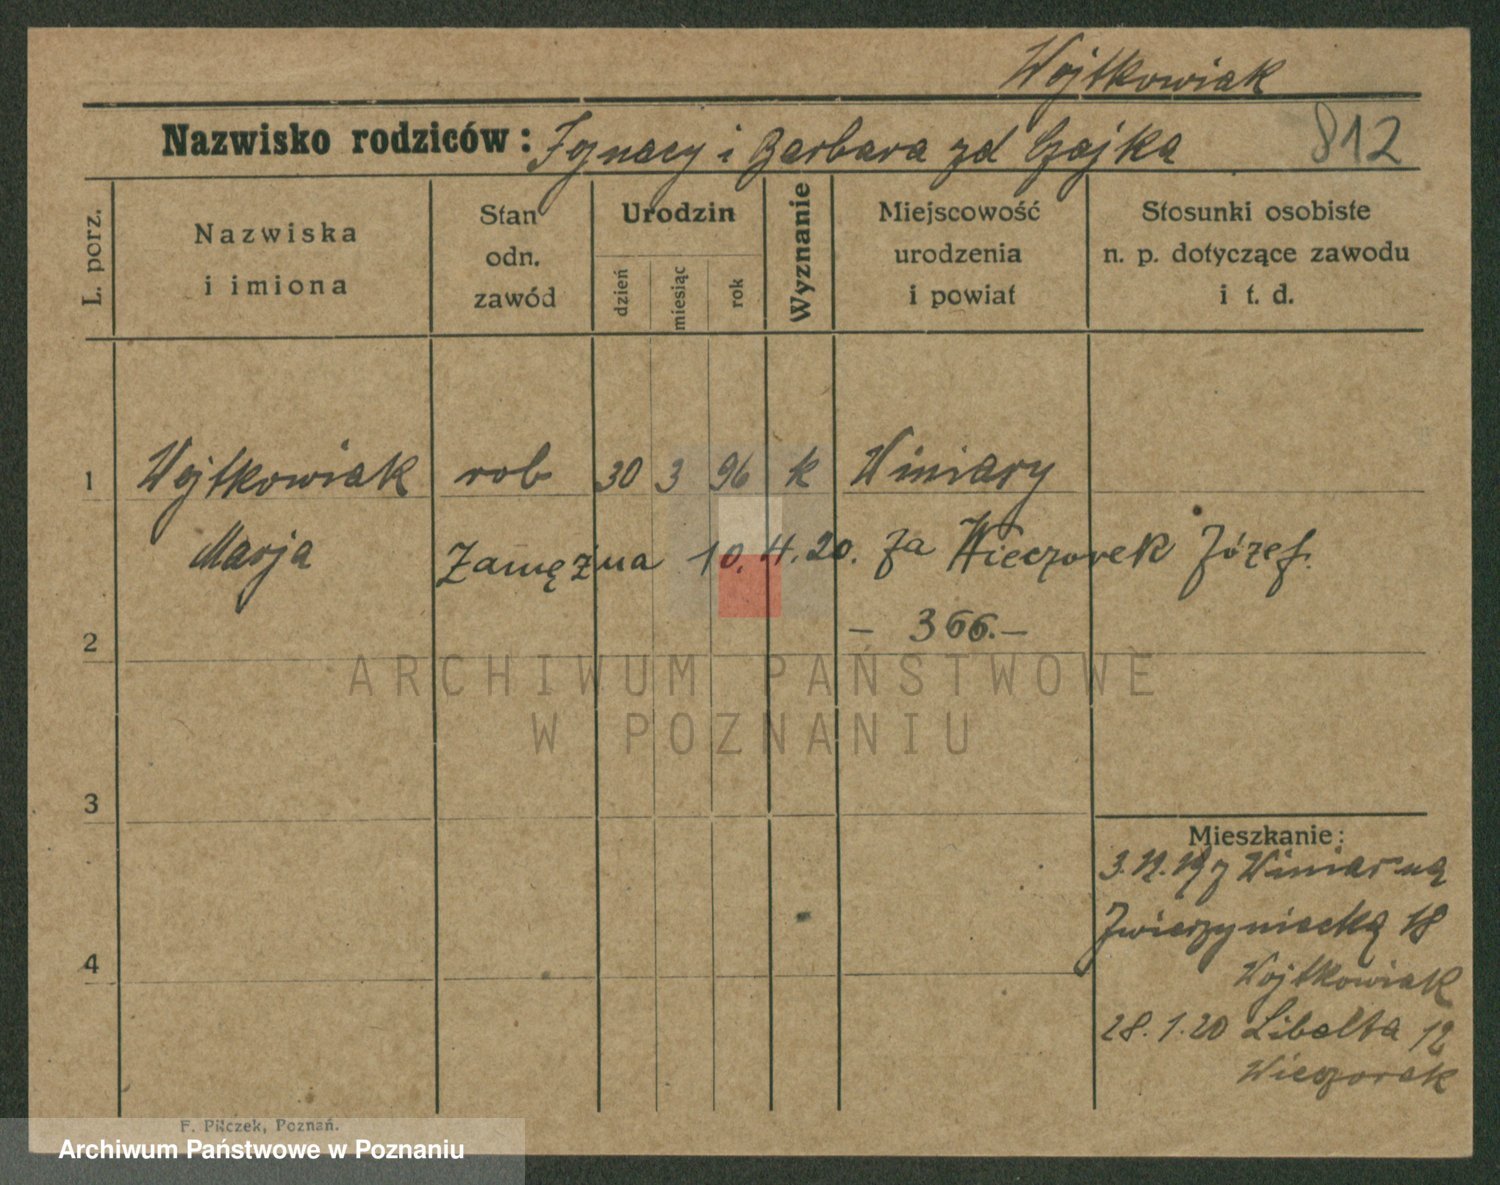 Wojtkowiak
Nazwisko rodziców: Ignacy i Barbara zd Czajka 812
L. porz.
Nazwiska
i imiona
Stan
odn.
zawód
Urodzin
dzień
miesiąc
rok
Wyznanie
Miejscowość
urodzenia
i powiat
Stosunki osobiste
n. p. dotyczące zawodu
i t. d.
1 Wojtkowiak rob 30 3 96 k Winiary
Marja Zamężna 10.4.20. za Wieczorek Józef.
2 – 366.–
ARCHIWUM PAŃSTWOWE
W POZNANIU
3
Mieszkanie:
3. 19 z Winiar na
Zwierzyniecką 18
4
Wojtkowiak
28.1.20 Libelta 12
Wieczorek
F. Pilczek, Poznań.
Archiwum Państwowe w Poznaniu